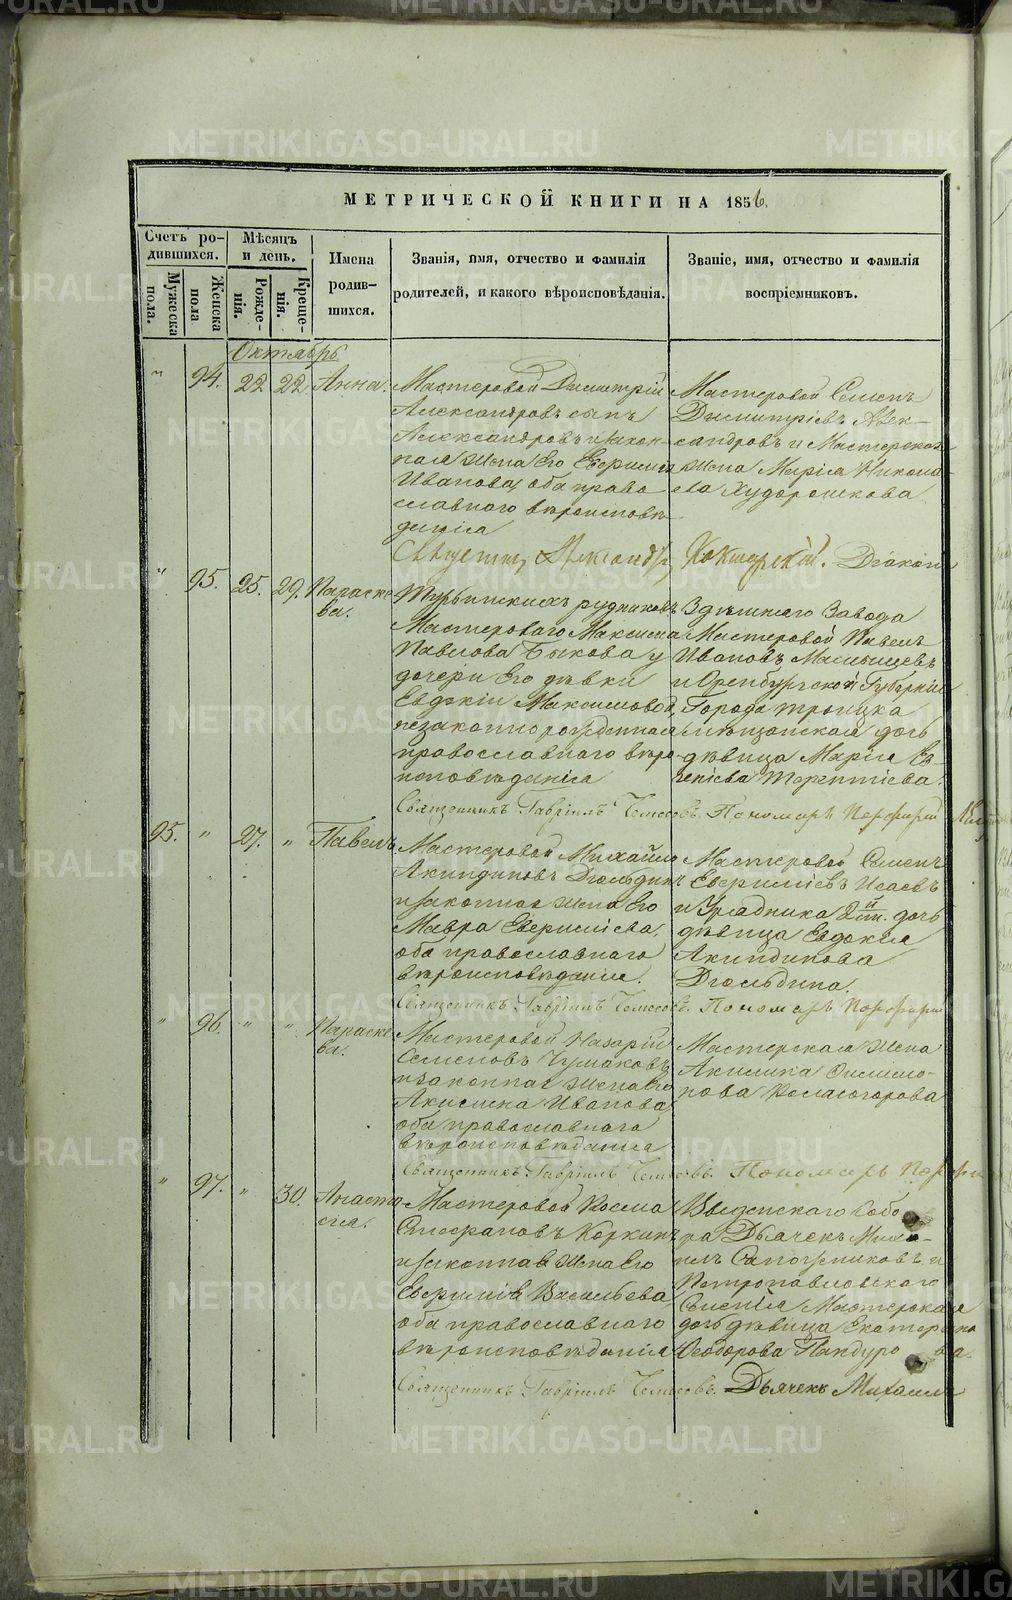 МЕТРИЧЕСКОЙ КНИГИ НА 1856.
Счетъ ро-
дившихся.
Мужеска
пола.
Женска
пола
Мѣсяцъ
и день.
Рожде-
нія.
Креще-
нія.
Имена
родив-
шихся.
Званія, имя, отчество и фамилія
родителей, и какого вѣроисповѣданія.
Званіе, имя, отчество и фамилія
воспріемниковъ.
Октябрь
" 94. 22 22 Анна.
Мастеровой Димитрій
Александровъ сынъ
Александровъ и закон-
ная жена Его Евфимия
Иванова, оба право
славнаго вѣроисповѣ-
данія
Мастеровой Семенъ
Димитріевъ Алек-
сандровъ и Мастерская
жена Марія Никола-
ева Худорошкова
Александръ Діаконъ
" 95. 25. 29. Параске
ва.
Турьинскихъ рудниковъ
Мастероваго Максима
Павлова Быкова у
дочери Его дѣвки
Евдокіи Максимовой,
незаконнорожденная
православнаго вѣро-
исповѣданія
Здѣшняго Завода
Мастеровой Павелъ
Ивановъ Мальцевъ
и Оренбургской Губерніи
Города Троицка
мѣщанская дочь
дѣвица Марія Ев-
геніева Терентіева.
Священникъ Гавріилъ Пономарь Порфирій
95. " 27. " Павелъ
Мастеровой Михайло
Акиндиновъ Дюльдинъ
и законная жена Его
Мавра Евфиміева
оба православнаго
вѣроисповѣданія.
Мастеровой Семенъ
Евфиміевъ Исаевъ
и Урядника 2й ст. дочь
дѣвица Евдокія
Акиндинова
Дюльдина.
Священникъ Гавріилъ Пономарь Порфирій
" 96. " " Параске
ва.
Мастеровой Назарій
Семеновъ Чумаковъ
и законная жена Его
Акилина Иванова
оба православнаго
вѣроисповѣданія
Мастерская жена
Акилина
нова
Священникъ Гавріилъ Пономарь Порфи
" 97. " 30. Анаста
сія.
Мастеровой Косма
Стефановъ Коркинъ
и законная жена Его
Евфимія Васильева
оба православнаго
вѣроисповѣданія
Собо
ра Дьячекъ Миха-
илъ Сапожниковъ и
Петропавловскаго
Селенія Мастерская
дочь дѣвица Екатерина
Ѳеодорова
Священникъ Гавріилъ Дьячекъ Михаилъ
METRIKI.GASO-URAL.RU